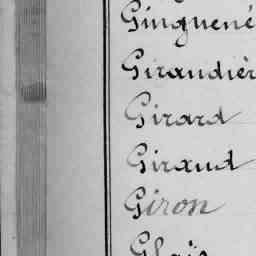 Ginguené
Giraudièr
Girard
Giraud
Giron
Glais